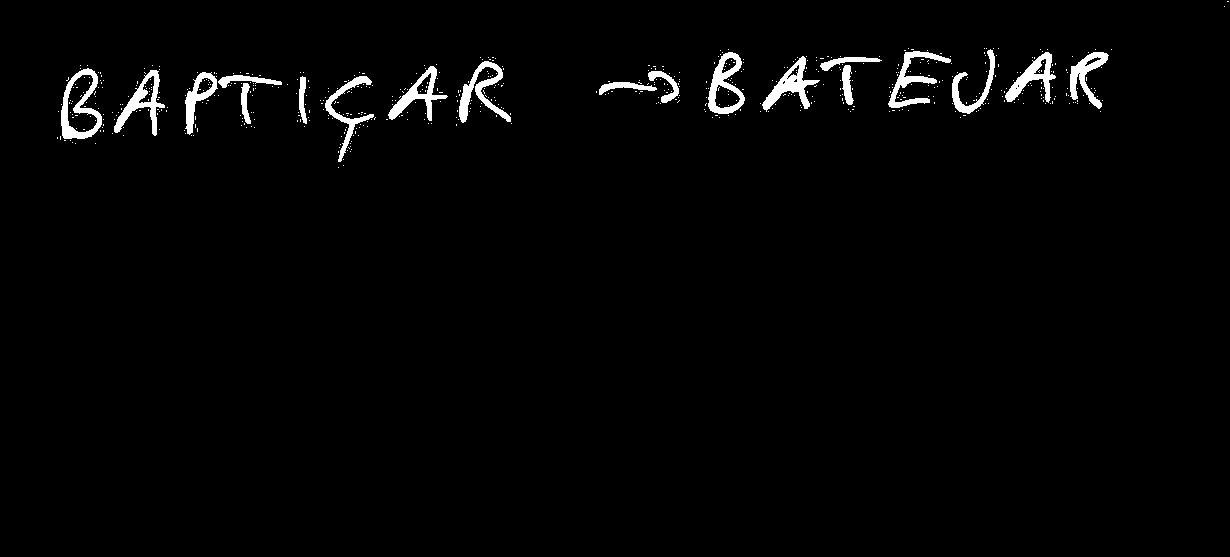 BAPTIÇAR → BATEJAR